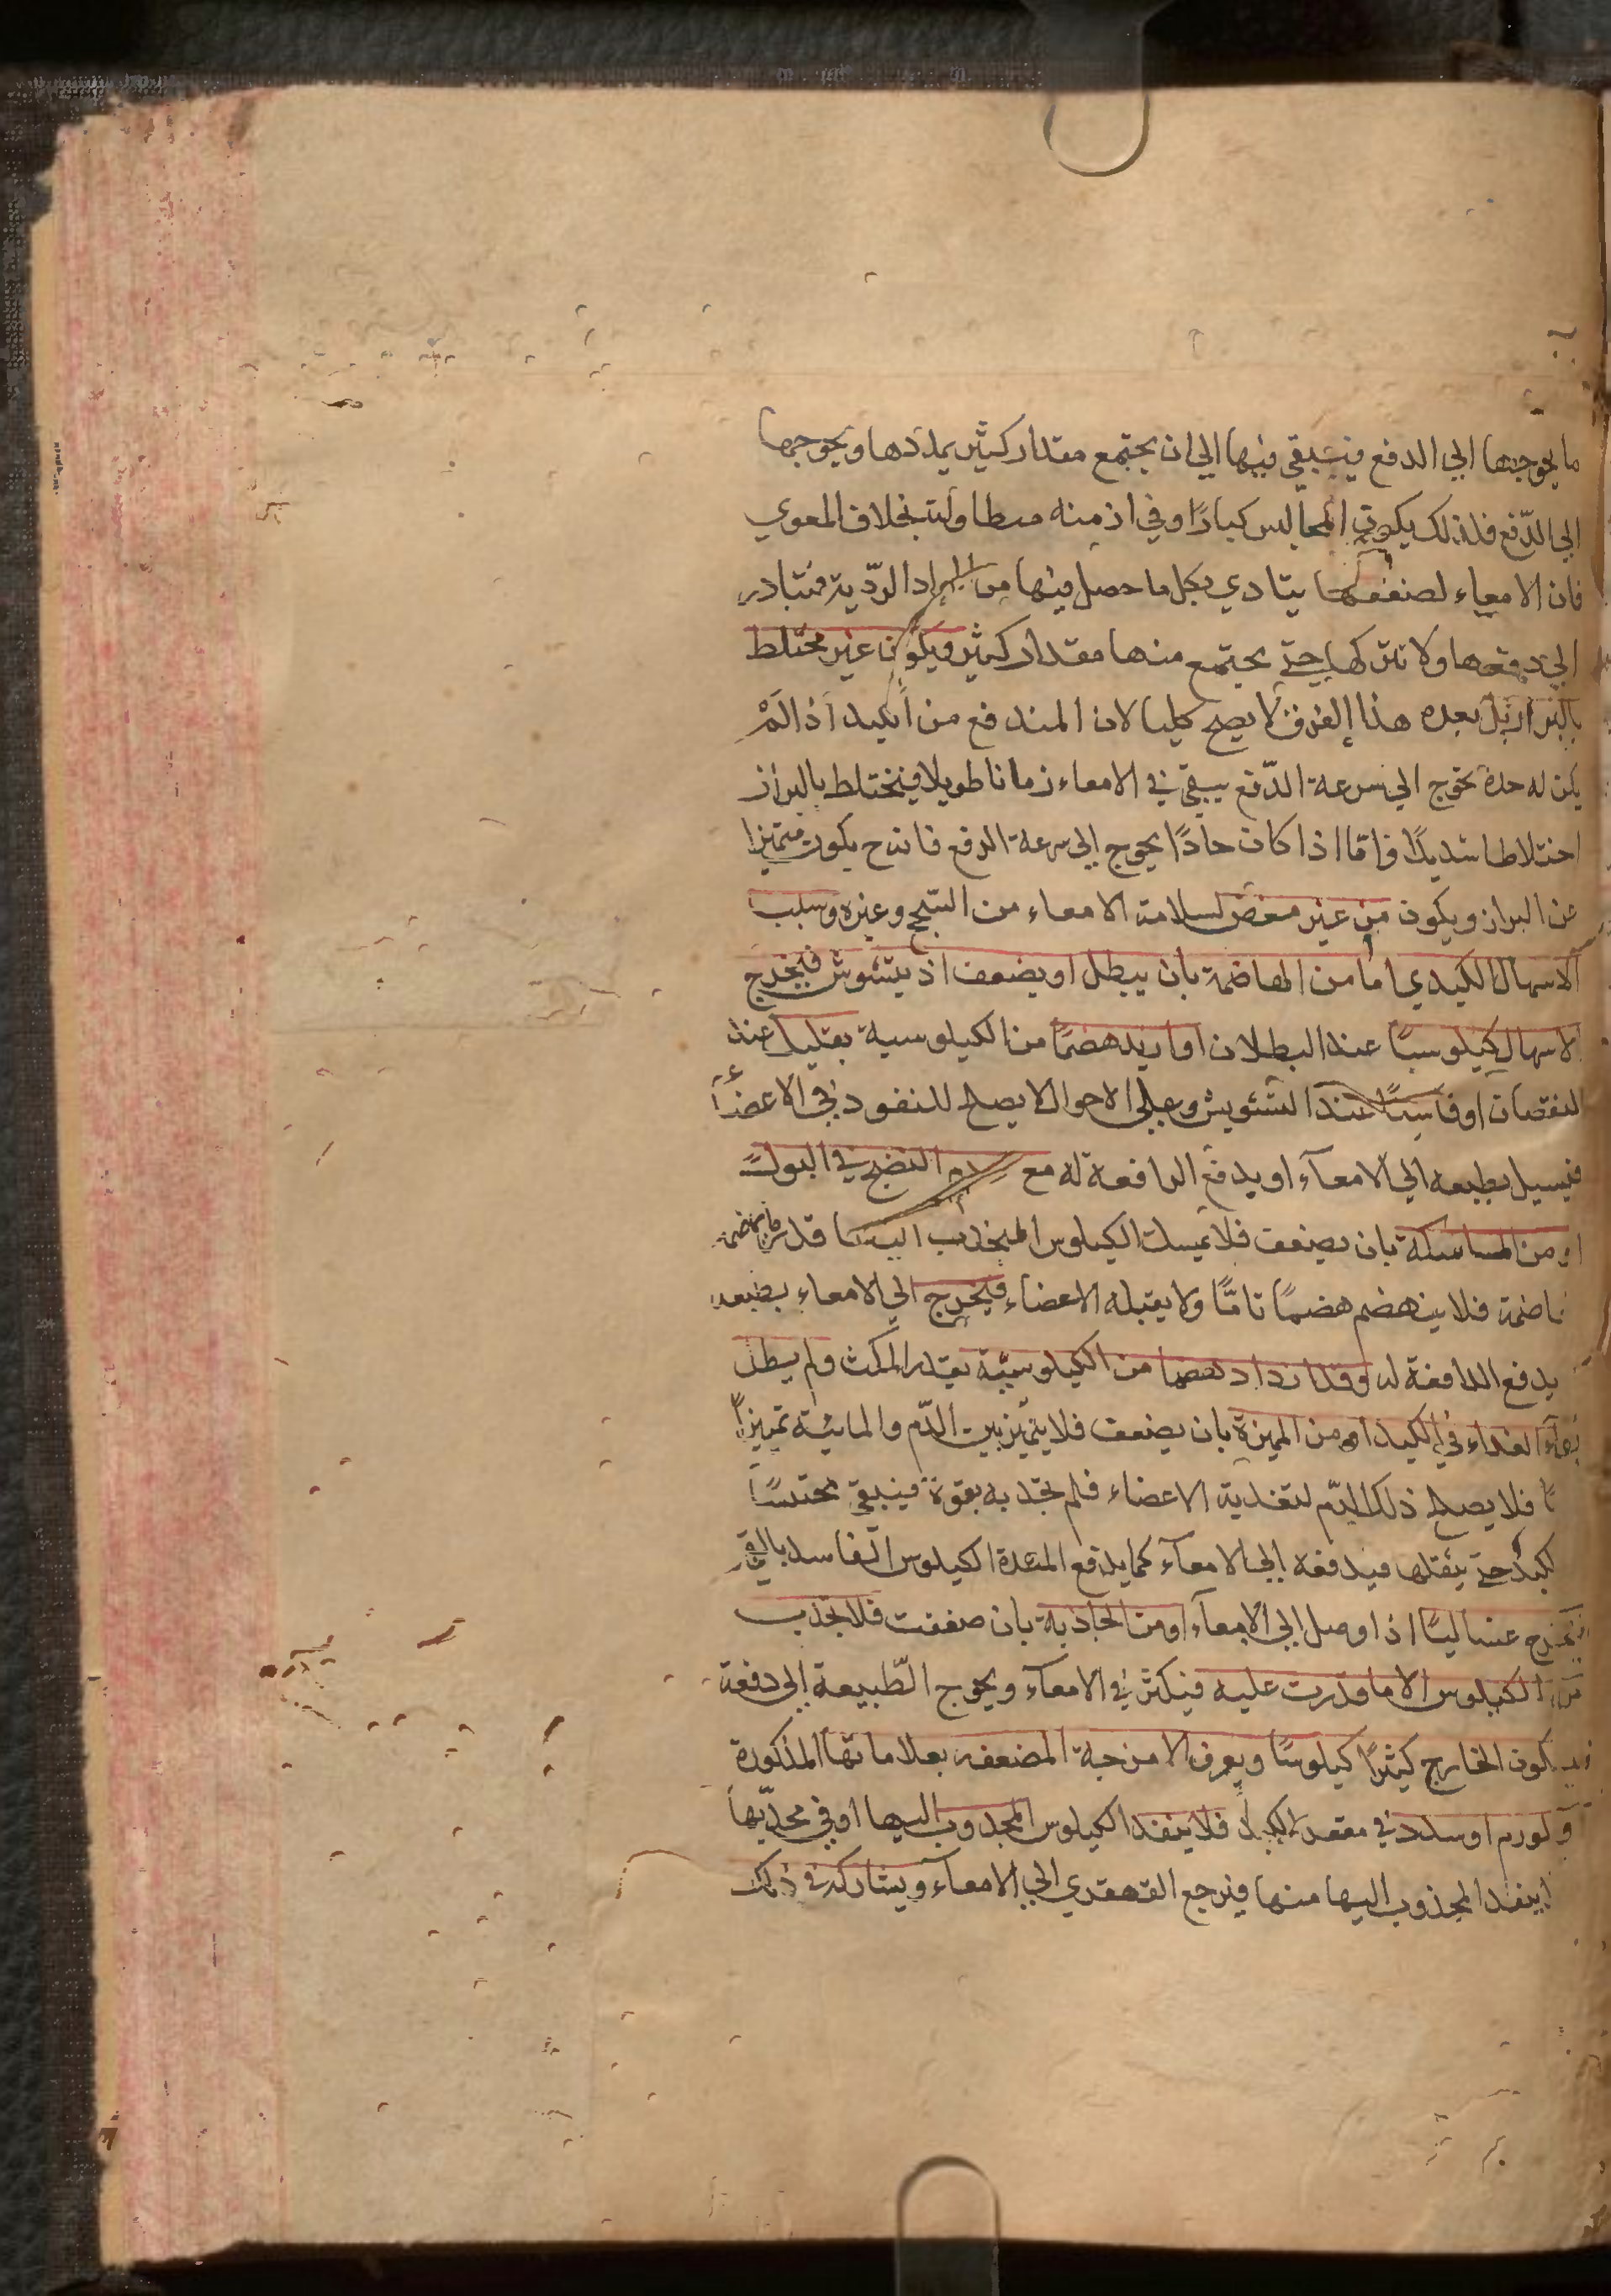 ما يحوجها الي الدفع فيبقي فيها الي ان يجتمع مقدار كثير يمددها ويحوجها
الي الدّفع فلذلك يكون المجالس كبارًا وفي ازمنه متطاولت بخلاف المعوي
فان الامعاء لضعفها يتادي بكل ما حصل فيها من المواد الرّدية فتبادر
الي دفعها ولا تتركها حتي يجتمع منها مقدار كثير ويكون غير مختلط
بالبراز بل بعده هذا الفرق لا يصح كليا لان المندفع من الكبد اذا لَمْ
يكن له حدة تحوج الي سرعة الدّفع يبقي في الامعاء زمانا طويلا فيختلط بالبراز
اختلاطا شديدًا فامّا اذا كان حادًا يحوج الي سرعة الدفع فانه ح يكون متميزا
عن البراز ويكون من غير مغص لسلامة الامعاء من السّحج وغيره وسبب
الاسهال الكبدي اما من الهاضمة بان يبطل او يضعف اذ يتشوش فيخرج
الاسهال كيلوسيًا عند البطلان او ازيد هضمًا من الكيلوسية بقليل عند
النقصان او فاسدًا عند التشويش وعلي الاحوال لا يصلح للنفود في الاعضاء
فيسيل بطبعه الي الامعآء او يدفع الدافعة له مع عدم النضج في البول
او من الماسكة بان يضعف فلا يمسك الكيلوس المنجذب اليها قدر ما يهضمه
هاضمة فلا ينهضم هضمًا تامًّا ولا يقبله الاعضاء فيخرج الي الامعاء بطبعه
يدفع الدافعة له وقد ازداد هضما من الكيلوسيّة بقدر المكث ولم يبطل
الغداء في الكبد او من المميزة بان يضعف فلا يتميّز بين الدّم والمائيّة تميزاً
فلا يصلح ذلك الدّم لتغذية الاعضاء فلم تجذبه بقوة فيبقي محتبسًا
لكبد حتي يثقلها فيدفعه الي الامعآء كما يدفع المعدة الكيلوس الفاسد بالقي
فيخرج غساليًا اذا وصل الي الامعآء او من الجاذبة بان ضعفت فلا تجذب
من الكيلوس الا ما قدرت عليه فيكثر في الامعآء ويحوج الطّبيعة الي دفعة
يكون الخارج كثيرًا كيلوسًا ويعرف الامزجة المضعفه بعلاماتها المذكورة
او لورم او سدد في مقعر الكبد فلا ينفذ الكيلوس المجذوب اليها او في محدّبها
ينفد المجذوب اليها منها فيرجع القهقري الي الامعآء ويشاركه في ذلك